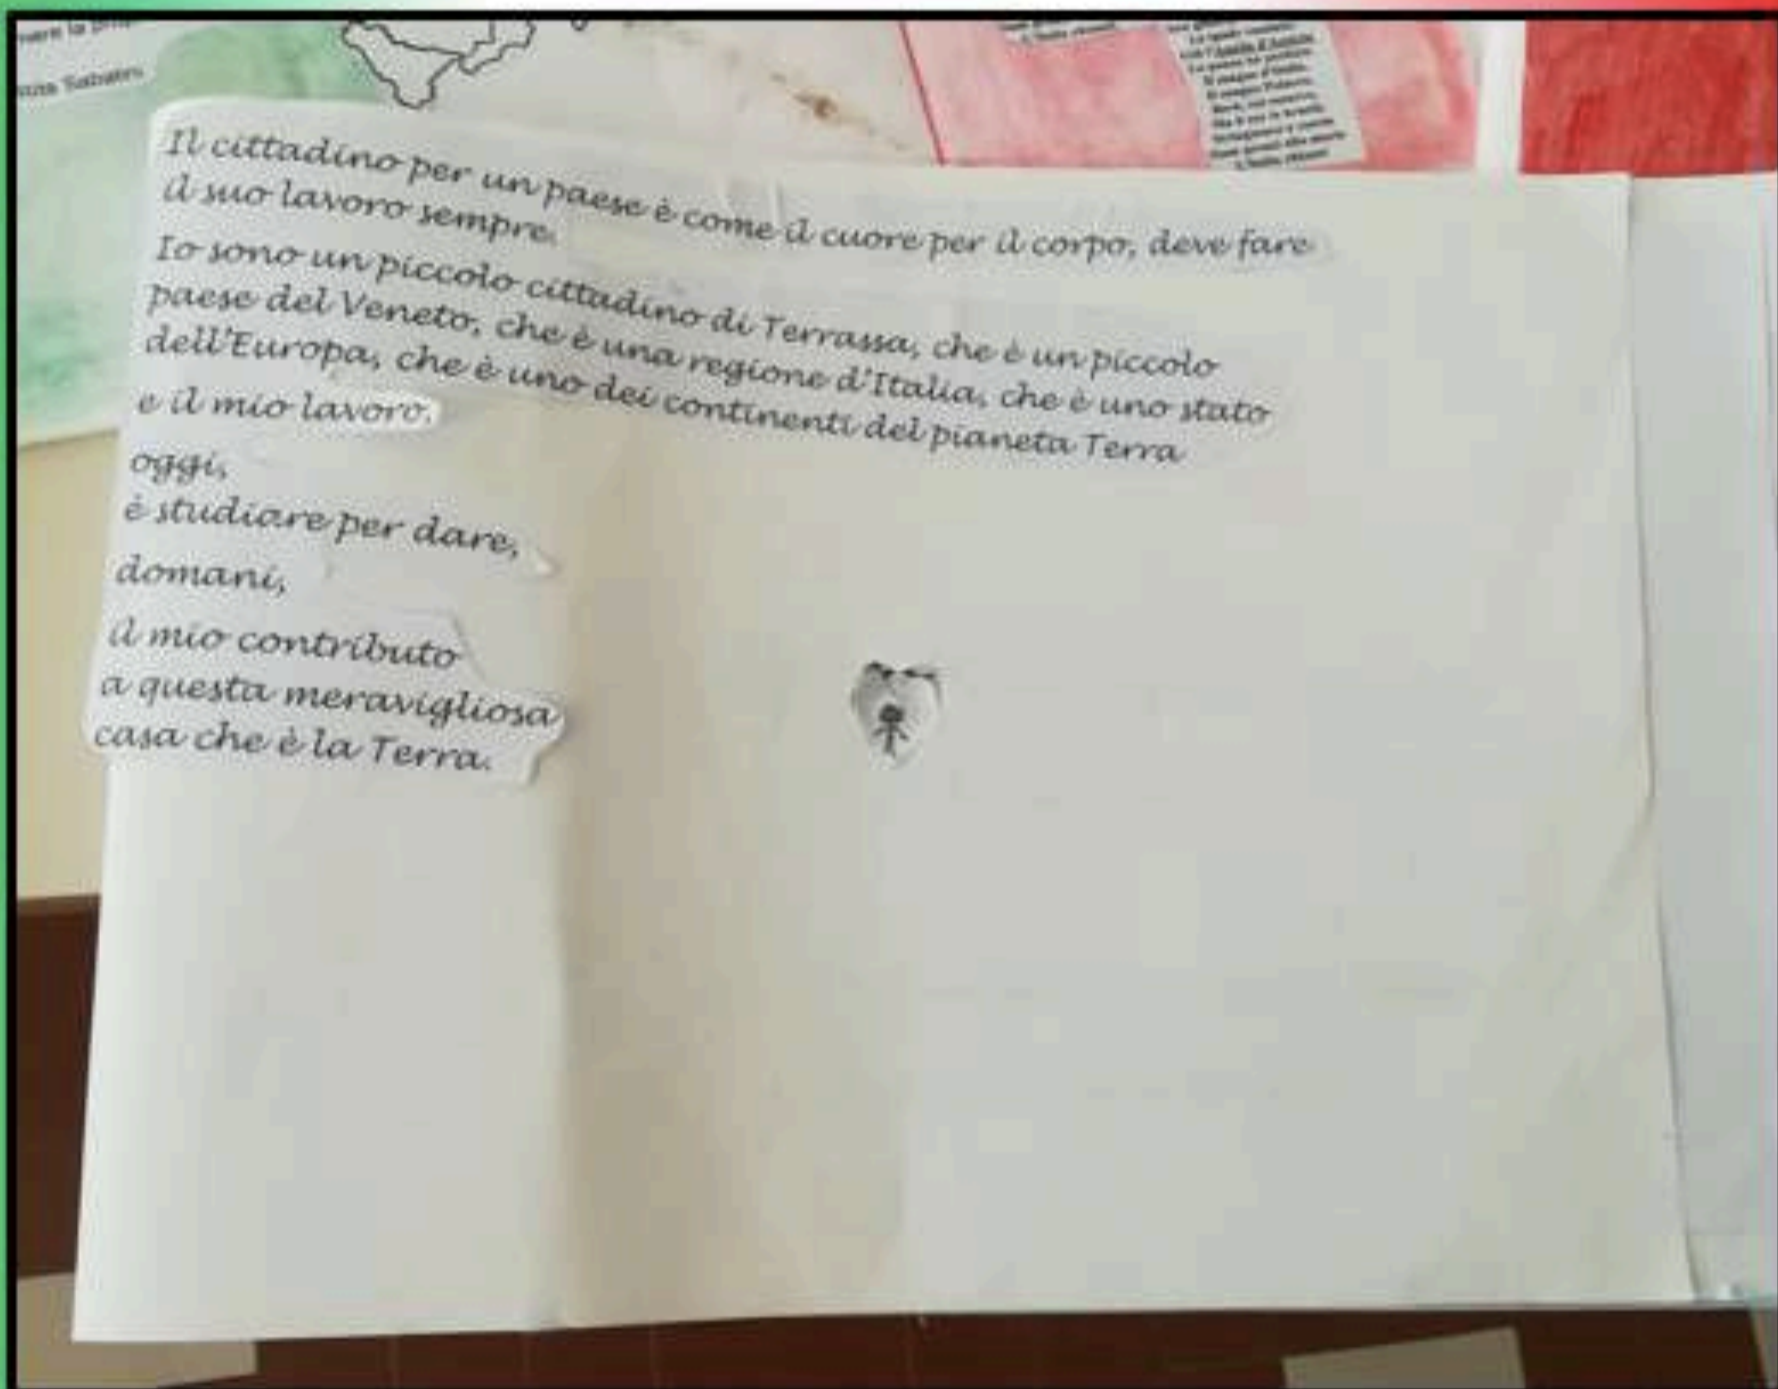 Sabatini
Il cittadino per un paese è come il cuore per il corpo, deve fare
il suo lavoro sempre.
Io sono un piccolo cittadino di Terrassa, che è un piccolo
paese del Veneto, che è una regione d'Italia, che è uno stato
dell'Europa, che è uno dei continenti del pianeta Terra
e il mio lavoro,
oggi,
è studiare per dare,
domani,
il mio contributo
a questa meravigliosa
casa che è la Terra.